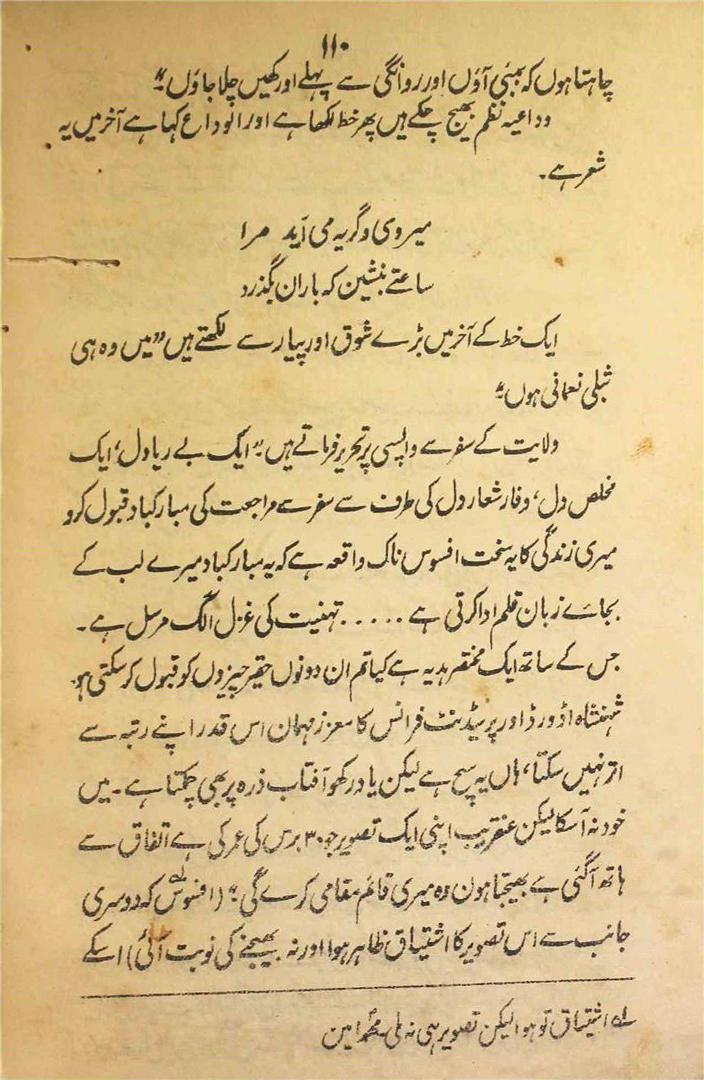 ۱۱۰
چاہتا ہوں کہ بمبئی آؤں اور روانگی سے پہلے اور کھیں چلا جاؤں"
وداعیہ نظم بھیج چکے ہیں پھر خط لکھا ہے اور الوداع کہا ہے آخر میں یہ
شعر ہے۔
میروی و گریہ می آید مرا
ساعتے بنشین کہ باران بگذرد
ایک خط کے آخر میں بڑے شوق اور پیار سے لکھتے ہیں "میں وہ ہی
شبلی نعمانی ہوں"
ولایت کے سفر سے واپسی پر تحریر فرماتے ہیں "ایک بے ریا دل، ایک
مخلص دل، وفا شعار دل کی طرف سے سفر سے مراجعت کی مبارکباد قبول کرو
میری زندگی کا یہ سخت افسوس ناک واقعہ ہے کہ یہ مبارکباد میرے لب کے
بجائے زبان قلم ادا کرتی ہے ..... تہنیت کی غزل الگ مرسل ہے۔
جس کے ساتھ ایک مختصر ہدیہ ہے کیا تم ان دونوں حقیر چیزوں کو قبول کر سکتی ہو
شہنشاہ اڈورڈ اور پرسیڈنٹ فرانس کا معزز مہمان اس قدر اپنے رتبہ سے
اتر نہیں سکتا، ہاں یہ سچ ہے لیکن یاد رکھو آفتاب ذرہ پر بھی چمکتا ہے۔ میں
خود نہ آسکا لیکن عنقریب اپنی ایک تصویر جو ۳۰ برس کی عمر کی ہے اتفاق سے
ہاتھ آگئی ہے بھیجتا ہون وہ میری قائم مقامی کرے گی" (افسوس لہ کہ دوسری
جانب سے اس تصویر کا اشتیاق ظاہر ہوا اور نہ بھیجنے کی نوبت آئی) اسکے
لہ اشتیاق تو ہوا لیکن تصویر ہی نہ ملی۔ محمد امین